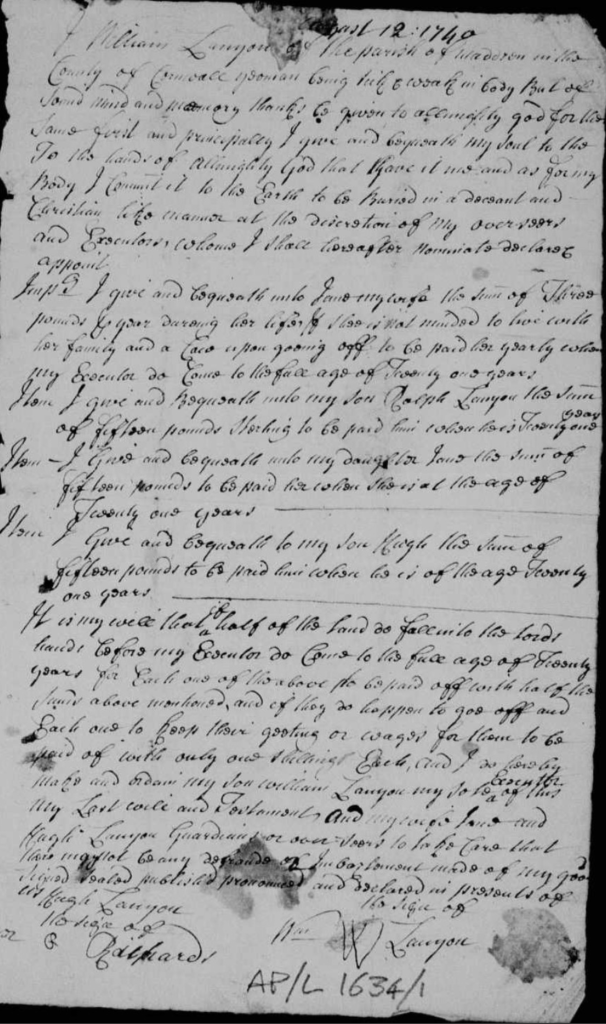 August 12: 1740
I William Lanyon of the parish of Maddren in the
County of Cornwall yeoman being sick & weak in body But of
Sound mind and memory thanks be given to allmighty god for the
same first and principally I give and beqveath my Soul to the
To the hands of Allmighty God that it me and as for my
Body I Commit it to the Earth to be Buried in a deceant and
Christian like manner at the discretion of my overseers
and Executors whome I shall hereafter nominate declare &
appoint
I give and bequeath unto Jane my wife the sum of Three
pounds year dureing her life if shee is not minded to live with
her family and a upon going off to be paid her yearly when
my Executor do Come to the full age of Twenty one years
Item I give and Bequeath unto my son Ralph Lanyon the sum
of fifteen pounds sterling to be paid him when he is Twenty one years
Item - I Give and bequeath unto my daughter Jane the sum of
fifteen pounds to be paid her when she is at the age of
Twenty one years
Item I Give and bequeath to my son Hugh the Sum of
fifteen pounds to be paid him when he is of the age Twenty
one years
It is my will that half of the Land do fall into the Lords
hands before my Executor do Come to the full age of Twenty
years for Each one of the above to be paid off with half the
sums above mentioned, and if they do happen to goe off and
Each one to keep their geeting or wages for them to be
paid of with only one shilling Each, And I do hereby
make and ordain my son william Lanyon my sole Executor of this
My Last will and Testament, And my wife Jane and
Hugh Lanyon Guardians or over seers to take Care that
there may not be any defraude or Imbastement made of my good
signed sealed publish'd pronounced and declared in presents of
us Hugh Lanyon the signe of
the signe of Wm W Lanyon
R Richards
AP/L 1634/1